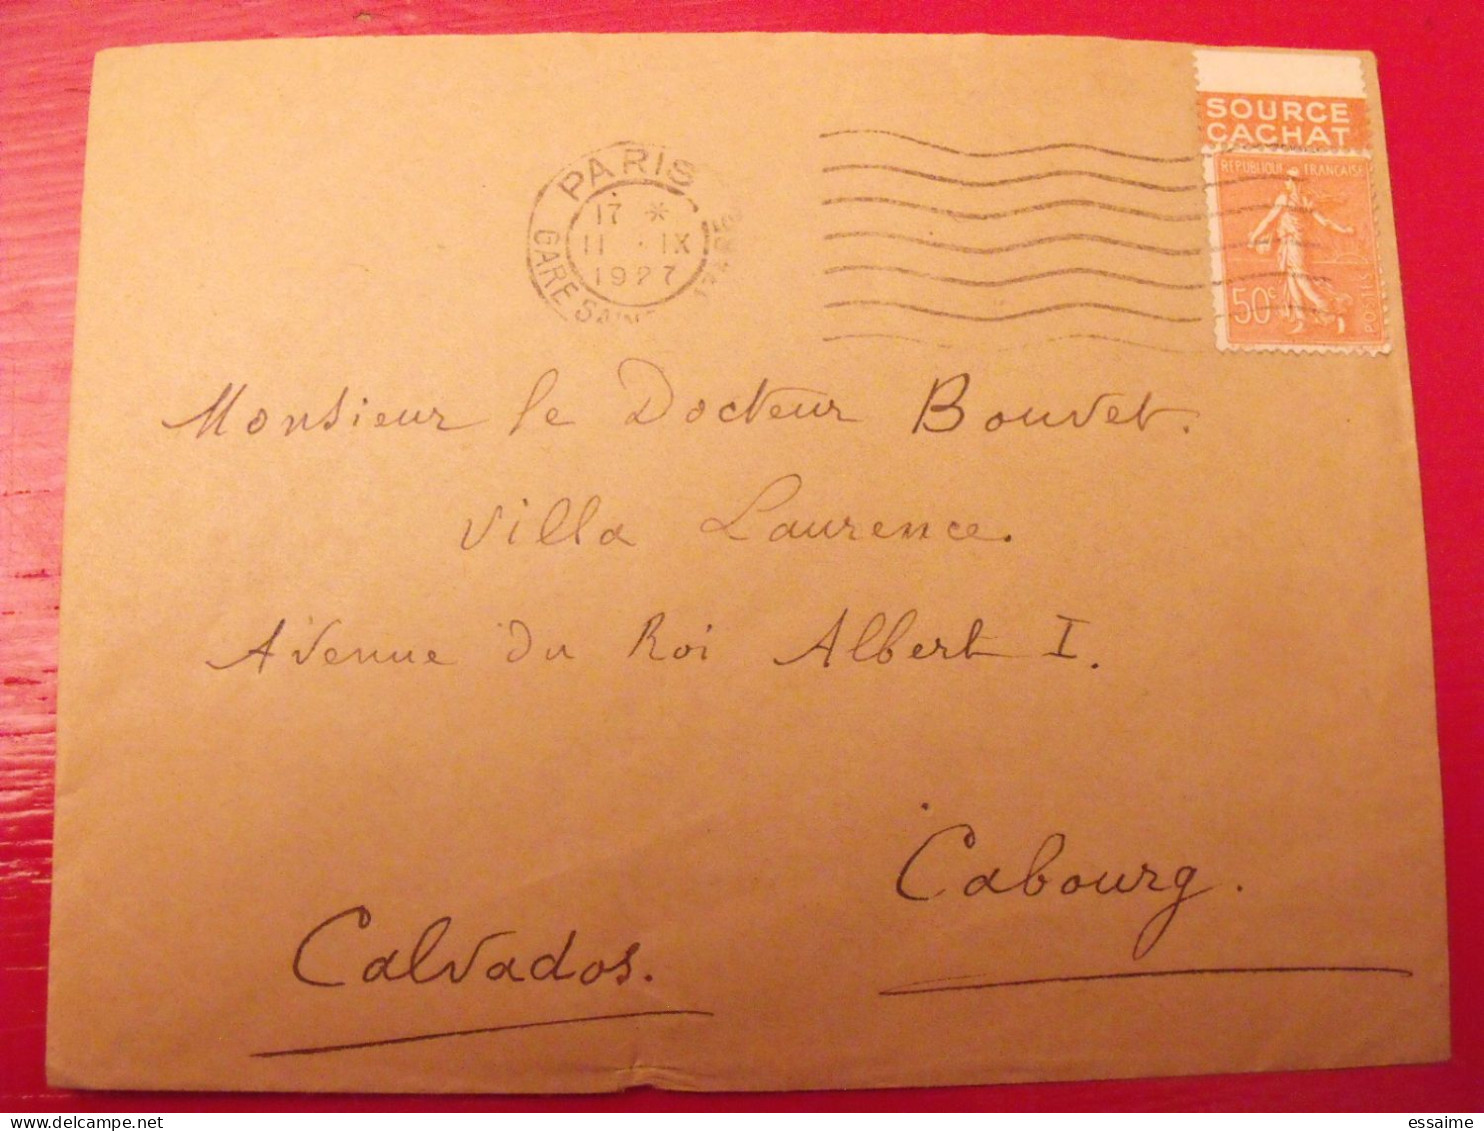 SOURCE
CACHAT
REPUBLIQUE FRANÇAISE
50c
POSTES
PARIS
17 *
11 · IX
1927
GARE SAINT
Monsieur le Docteur Bouvet.
Villa Laurence.
Avenue du Roi Albert I.
Cabourg.
Calvados.
www.delcampe.net
essaime